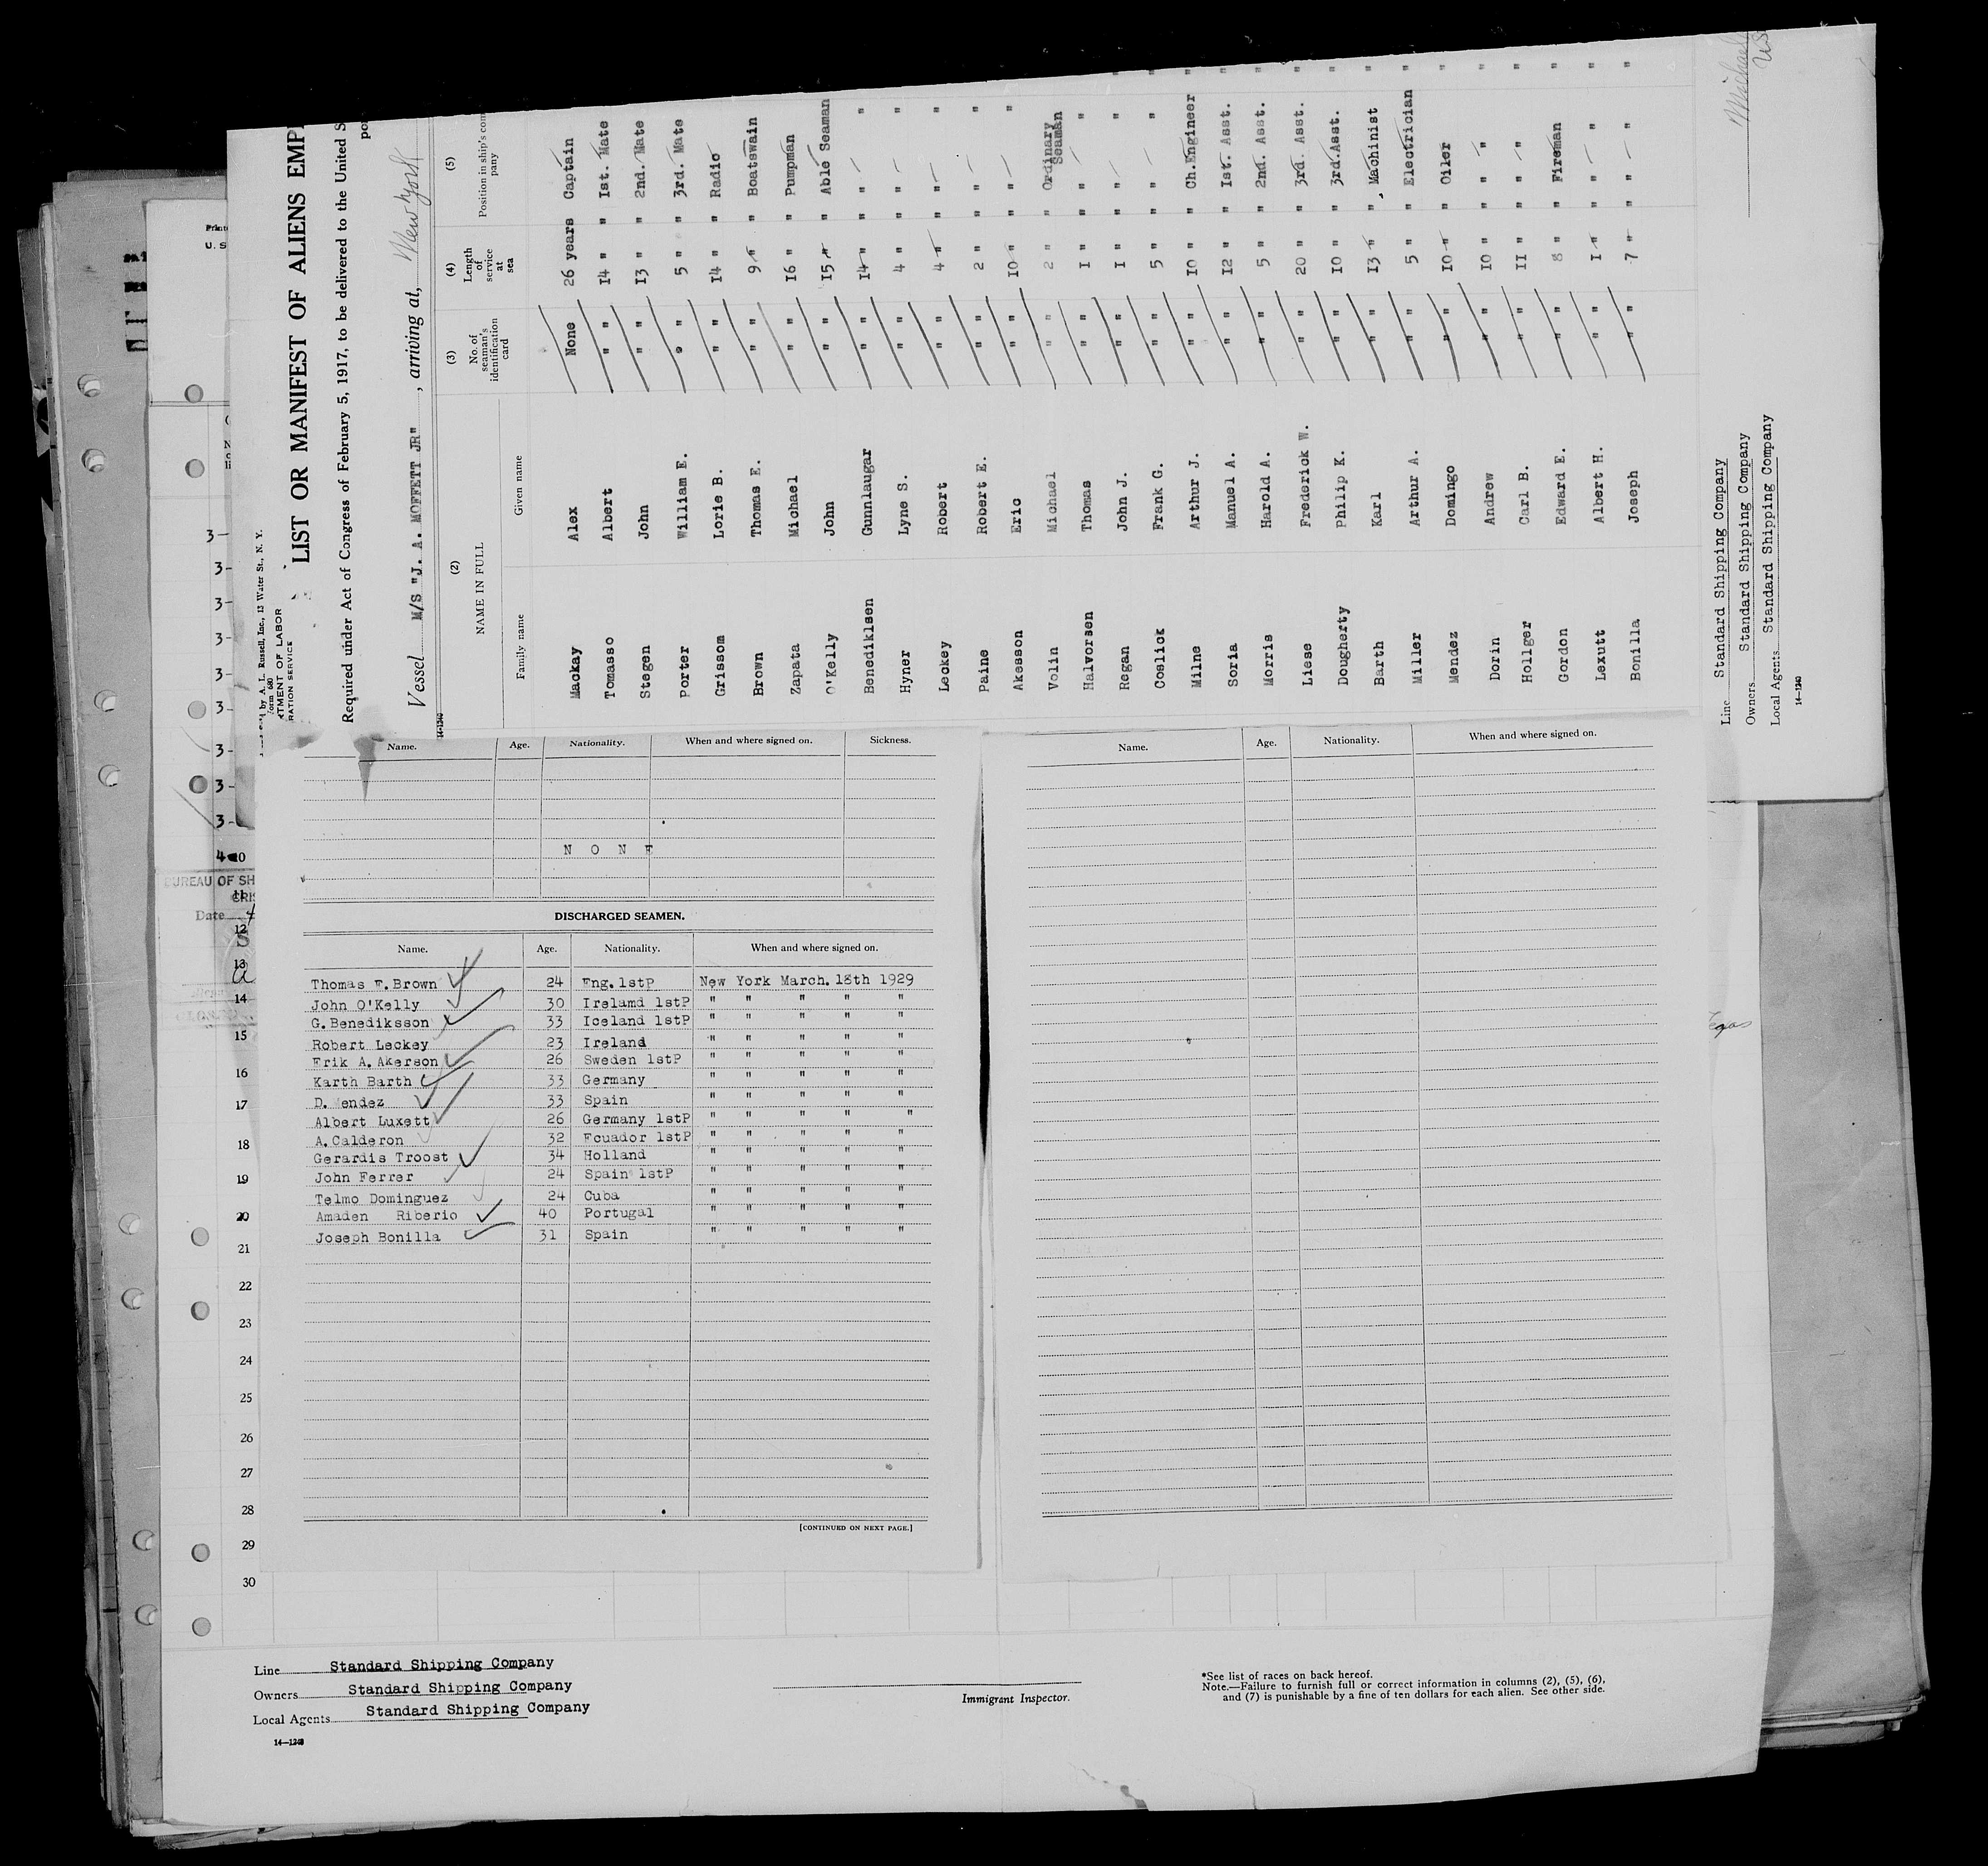 Form 680
TMENT OF LABOR
RATION SERVICE
by A. L. Russell, Inc., 13 Water St., N. Y.
LIST OR MANIFEST OF ALIENS EMP
Required under Act of Congress of February 5, 1917, to be delivered to the United S
Vessel M/S "J. A. MOFFETT JR", arriving at, New York
(2) (3) (4) (5)
NAME IN FULL No. of seaman's identification card Length of service at sea Position in ship's company
Family name Given name
Mackay Alex None 26 years Captain
Tomasso Albert " " 14 " " Ist. Mate
Stegen John " " 13 " " 2nd. Mate
Porter William E. " " 5 " " 3rd. Mate
Grissom Lorie B. " " 14 " " Radio
Brown Thomas E. " " 9 " " Boatswain
Zapata Michael " " 16 " " Pumpman
O'Kelly John " " 15 " " Able Seaman
Benediklsen Gunnlaugar " " 14 " " " "
Hyner Lyne S. " " 4 " " " "
Leckey Robert " " 4 " " " "
Paine Robert E. " " 2 " " " "
Akesson Eric " " 10 " " " "
Volin Michael " " 2 " " Ordinary Seaman
Halvorsen Thomas " " I " " " "
Regan John J. " " I " " " "
Coslick Frank G. " " 5 " " " "
Milne Arthur J. " " 10 " " Ch.Engineer "
Soria Manuel A. " " 12 " " Ist. Asst. "
Morris Harold A. " " 5 " " 2nd. Asst. "
Liese Frederick W. " " 20 " " 3rd. Asst. "
Dougherty Philip K. " " 10 " " 3rd.Asst. "
Barth Karl " " 13 " " Machinist "
Miller Arthur A. " " 5 " " Electrician "
Mendez Domingo " " 10 " " Oiler "
Dorin Andrew " " 10 " " " " "
Hollger Carl B. " " II " " " " "
Gordon Edward E. " " 8 " " Fireman "
Lexutt Albert H. " " I " " " " "
Bonilla Joseph " " 7 " " " " "
Line Standard Shipping Company
Owners Standard Shipping Company
Local Agents Standard Shipping Company
14-1240
Name. Age. Nationality. When and where signed on. Sickness.
N O N E
DISCHARGED SEAMEN.
Name. Age. Nationality. When and where signed on.
Thomas F.Brown 24 Eng.1stP New York March.18th 1929
John O'Kelly 30 Irelamd 1stP " " " " "
G.Benediksson 33 Iceland 1stP " " " " "
Robert Leckey 23 Ireland " " " " "
Erik A.Akerson 26 Sweden 1stP " " " " "
Karth Barth 33 Germany " " " " "
D. endez 33 Spain " " " " "
Albert Luxett 26 Germany 1stP " " " " "
A.Calderon 32 Ecuador 1stP " " " " "
Gerardis Troost 34 Holland " " " " "
John Ferrer 24 Spain 1stP " " " " "
Telmo Dominguez 24 Cuba " " " " "
Amaden Riberio 40 Portugal " " " " "
Joseph Bonilla 31 Spain " " " " "
[CONTINUED ON NEXT PAGE.]
Name. Age. Nationality. When and where signed on.
BUREAU OF SH
Date
11
12
13
14
15
16
17
18
19
20
21
22
23
24
25
26
27
28
29
30
Line Standard Shipping Company
Owners Standard Shipping Company
Local Agents Standard Shipping Company
14—1240
Immigrant Inspector.
*See list of races on back hereof.
Note.—Failure to furnish full or correct information in columns (2), (5), (6),
and (7) is punishable by a fine of ten dollars for each alien. See other side.